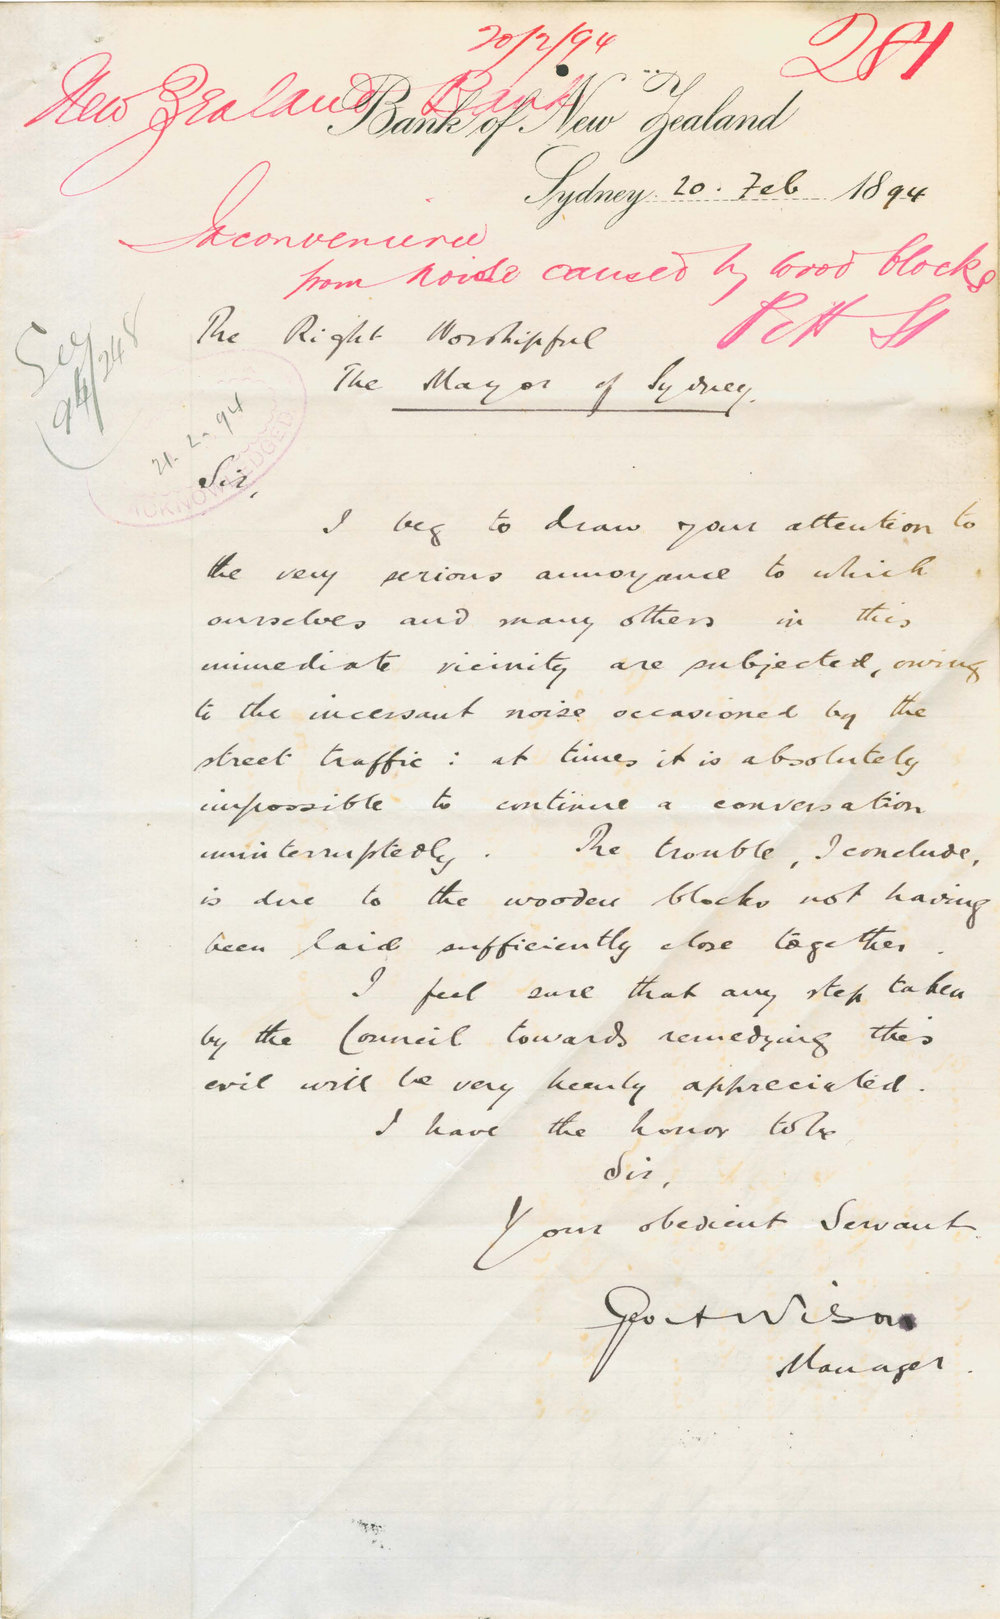 20/2/94
281
New Zealand Bank
Bank of New Zealand
Sydney 20. Feb 1894
Inconvenience
from noise caused by wood blocks
Pitt St
94/248
The Right Worshipful
The Mayor of Sydney.
21.2.94
ACKNOWLEDGED
Sir,
I beg to draw your attention to
the very serious annoyance to which
ourselves and many others in this
immediate vicinity are subjected, owing
to the incessant noise occasioned by the
street traffic : at times it is absolutely
impossible to continue a conversation
uninterruptedly. The trouble, I conclude,
is due to the wooden blocks not having
been laid sufficiently close together.
I feel sure that any step taken
by the Council towards remedying this
evil will be very keenly appreciated.
I have the honor to be
Sir,
Your obedient Servant.
Geo A Wilson
Manager.